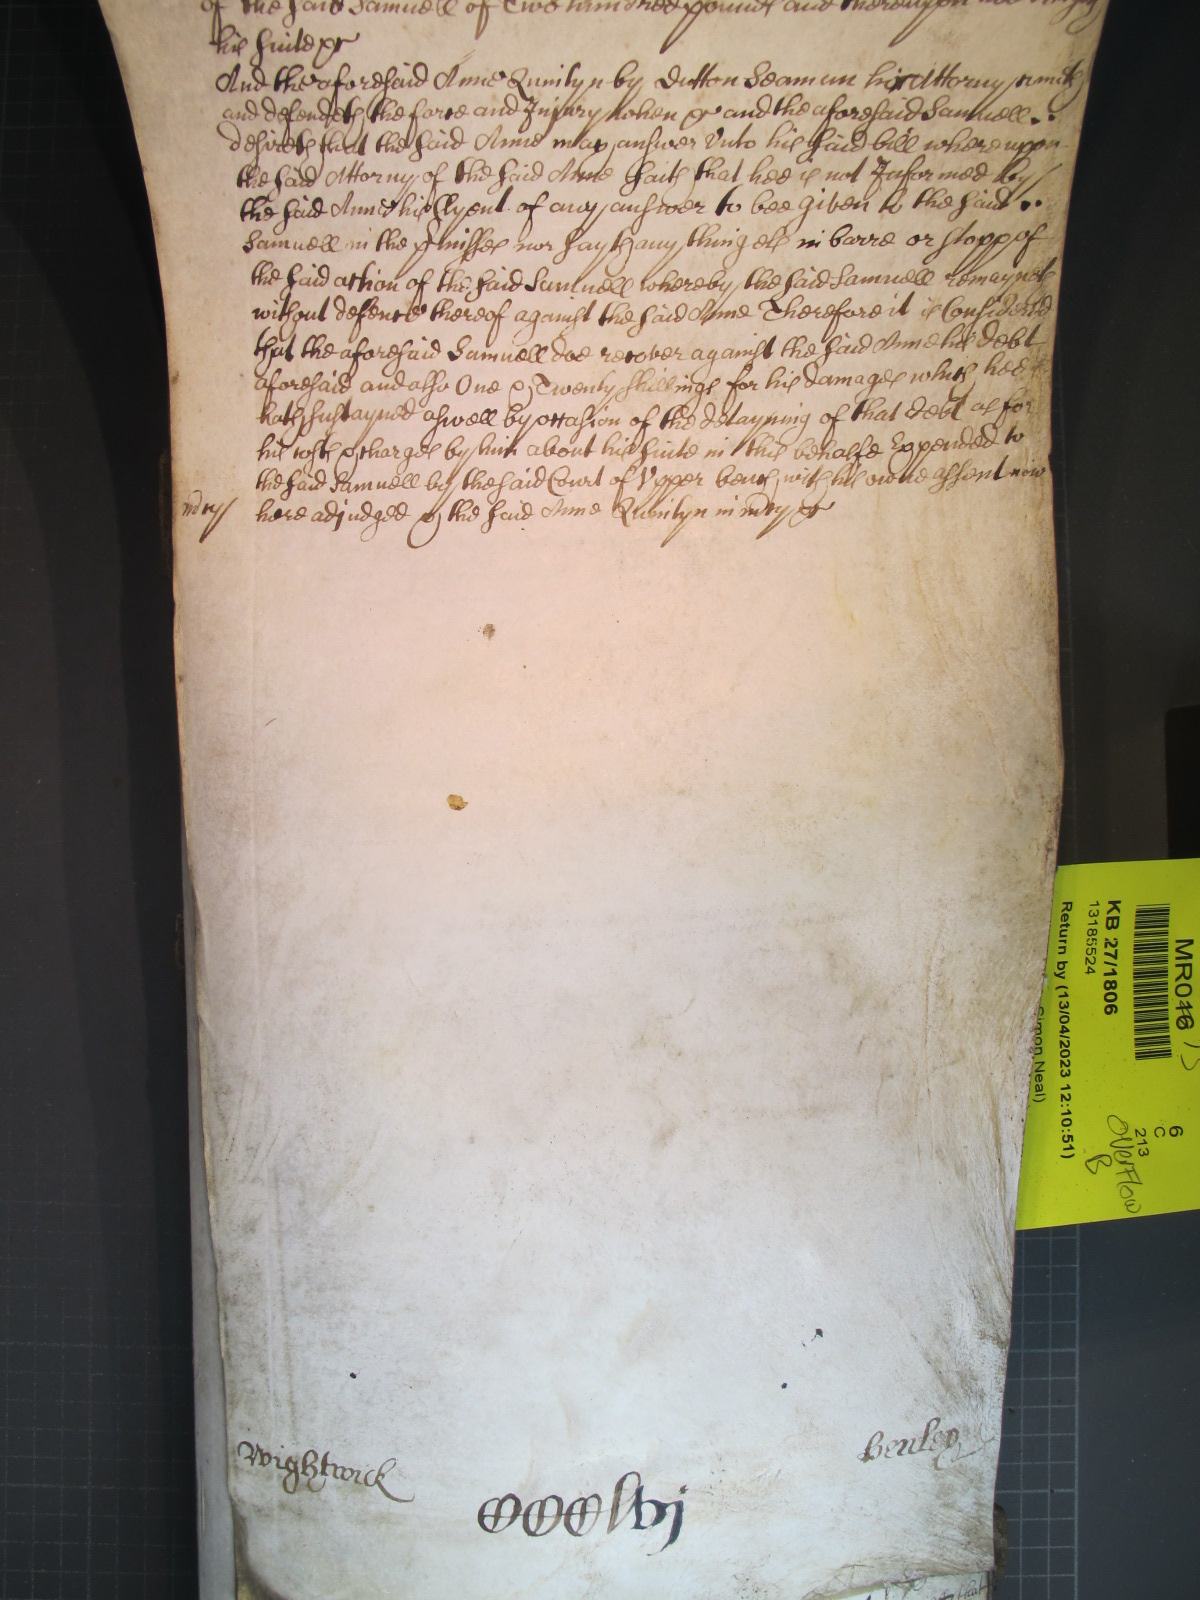 of the said Samuell of Two hundred pounds and thereupon hee
his suite &c
And the aforesaid Anne Quinlyn by Dutton Seaman his Attorny cometh
and defendeth the force and Injury when &c and the aforesaid Samuell
desireth that the said Anne may answer Vnto his said bill whereuppon
the said Attorny of the said Anne saith that hee is not Informed by
the said Anne his Clyent of any answer to bee given to the said
Samuell in the p'misses nor sayth any thing els in barre or stopp of
the said action of the said Samuell whereby the said Samuell remayneth
without defence thereof against the said Anne Therefore it is Considered
that the aforesaid Samuell doe recover against the said Anne his debt
aforesaid and also One & Twenty shillings for his damages which hee
hath sustayned aswell by occasion of the detayning of that debt as for
his costs & charges by him about his suite in this behalfe Expended to
the said Samuell by the said Court of Vpper bench with his owne assent now
mcy here adjudged & the said Anne Quinlyn in mcy &c
Wightwick
Henley
CCCClvj
MR046
6
C
213
overflow
B
KB 27/1806
13185524
Return by (13/04/2023 12:10:51)
Simon Neal)